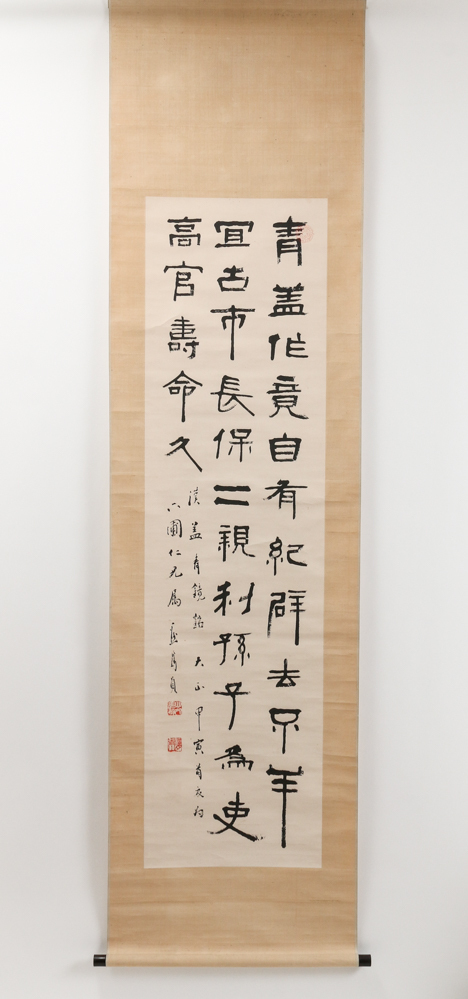 青盖作竟自有紀辟去不羊
宜古市長保二親利孫子為吏
高官壽命久
漢盖青鏡銘 大正甲寅首夏為
六園仁兄屬